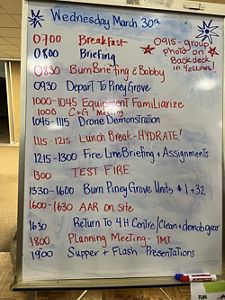 Wednesday March 30th
0700 Breakfast
0800 Briefing
0915-group
photo on
Back deck
in Yellows!
0830 Burn Briefing @ Bobby
0930 Depart To Piney Grove
1000-1045 Equipment Familiarize
1000 C+G Meeting
1045-1115 Drone Demonstration
1115-1215 Lunch Break-HYDRATE!
1215-1300 Fire Line Briefing + Assignments
1300 TEST FIRE
1330-1600 Burn Piney Grove Units 1+32
1600-1630 AAR on Site
1630 Return to 4H Centre/Clean+demob gear
1800 Planning Meeting-IMT
1900 Supper + Flash Presentations